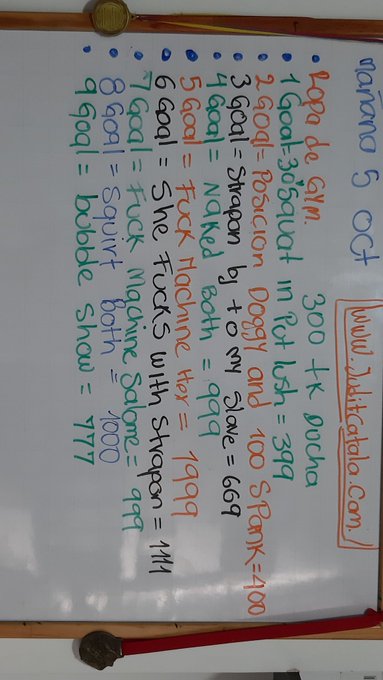 mañana 5 OCT
www.JuditCatala.com/
300 tk Ducha
• Ropa de GYM.
• 1 Goal = 30 Squat in Put lush = 399
• 2 Goal = Posicion Doggy and 100 Spank = 400
• 3 Goal = Strapon by to my Slave = 669
• 4 Goal = Naked Both = 999
• 5 Goal = Fuck Machine Her = 1999
• 6 Goal = She Fucks with Strapon = 1111
• 7 Goal = Fuck Machine Salone = 999
• 8 Goal = Squirt Both = 1000
• 9 Goal = bubble Show = 777